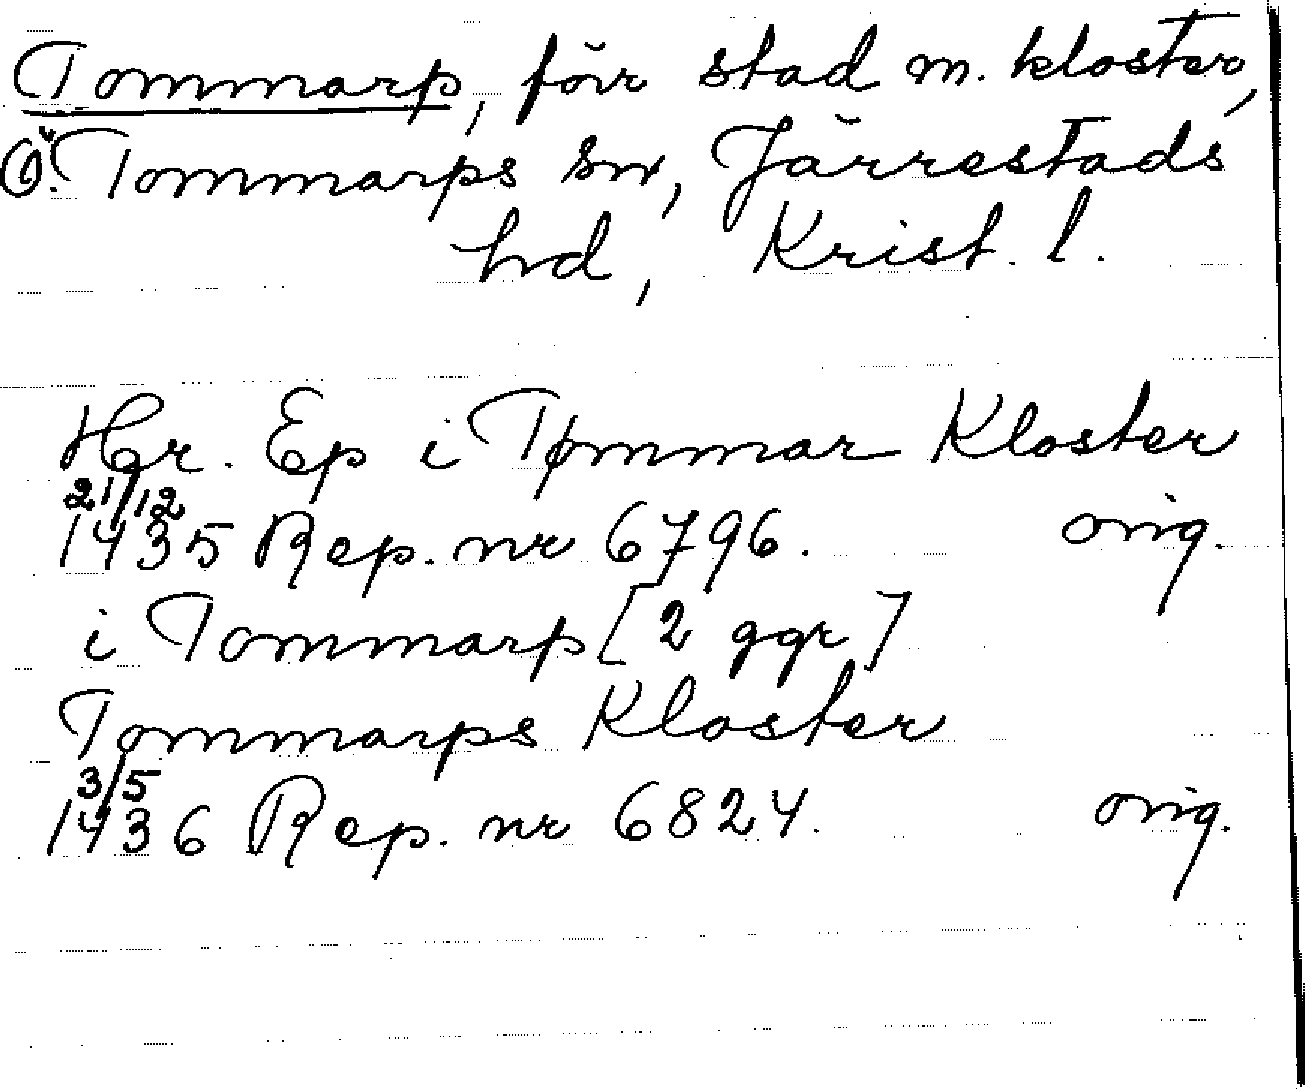 Tommarp, förr stad m. kloster,
Ö. Tommarps sn, Järrestads
hd, Krist. l.
Hr. Ep i Tømmar Kloster
21/12
1435 Rep. nr 6796. orig.
i Tommarp [2 ggr]
Tommarps Kloster
3/5
1436 Rep. nr 6824. orig.